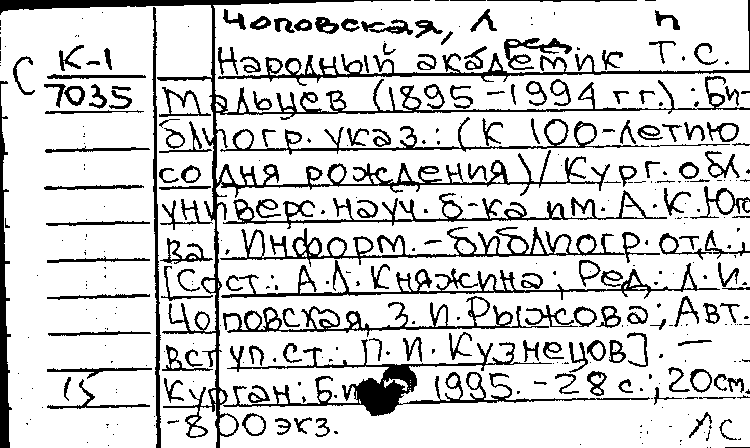 Чоповская, Л п
ред.
С К-1 Народный академик Т.С.
7035 Мальцев (1895-1994 гг.) : Би-
блиогр. указ.: (К 100-летию
со дня рождения) / Кург. обл.
универс. науч. б-ка им. А.К. Юго
ва. Информ.-библиогр. отд.;
[Сост.: А.Л. Княжина; Ред.: Л.И.
Чоповская, З.И. Рыжова; Авт.
вступ. ст.: П.И. Кузнецов]. —
15 Курган: Б.и 1995. -28 с.; 20см.
-800 экз. ЛС